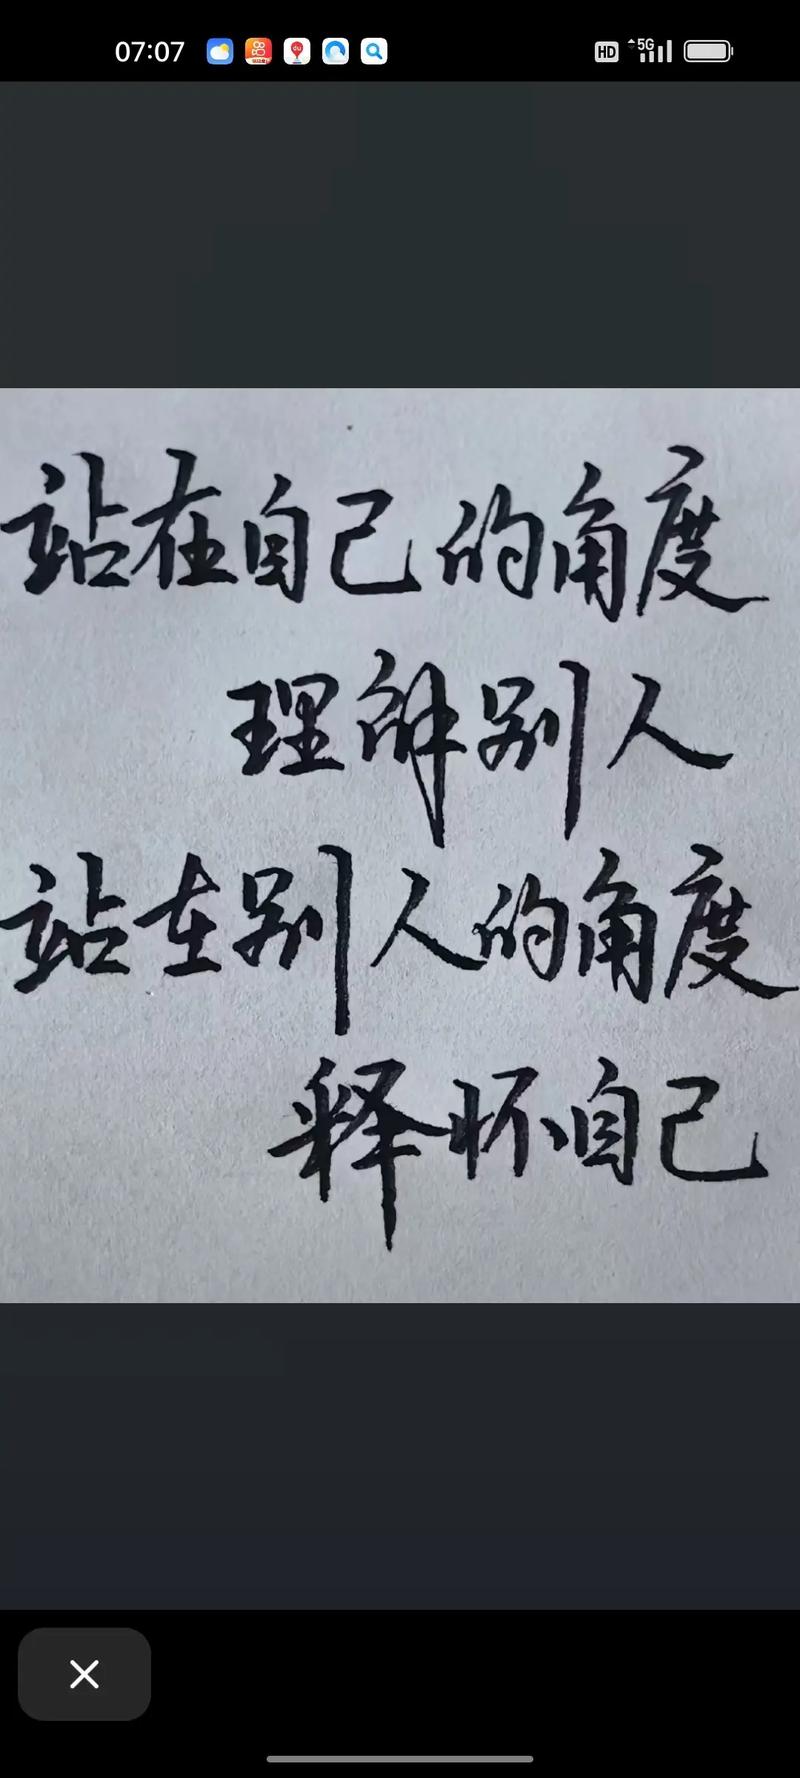 07:07
HD 5G
站在自己的角度
理解别人
站在别人的角度
释怀自己